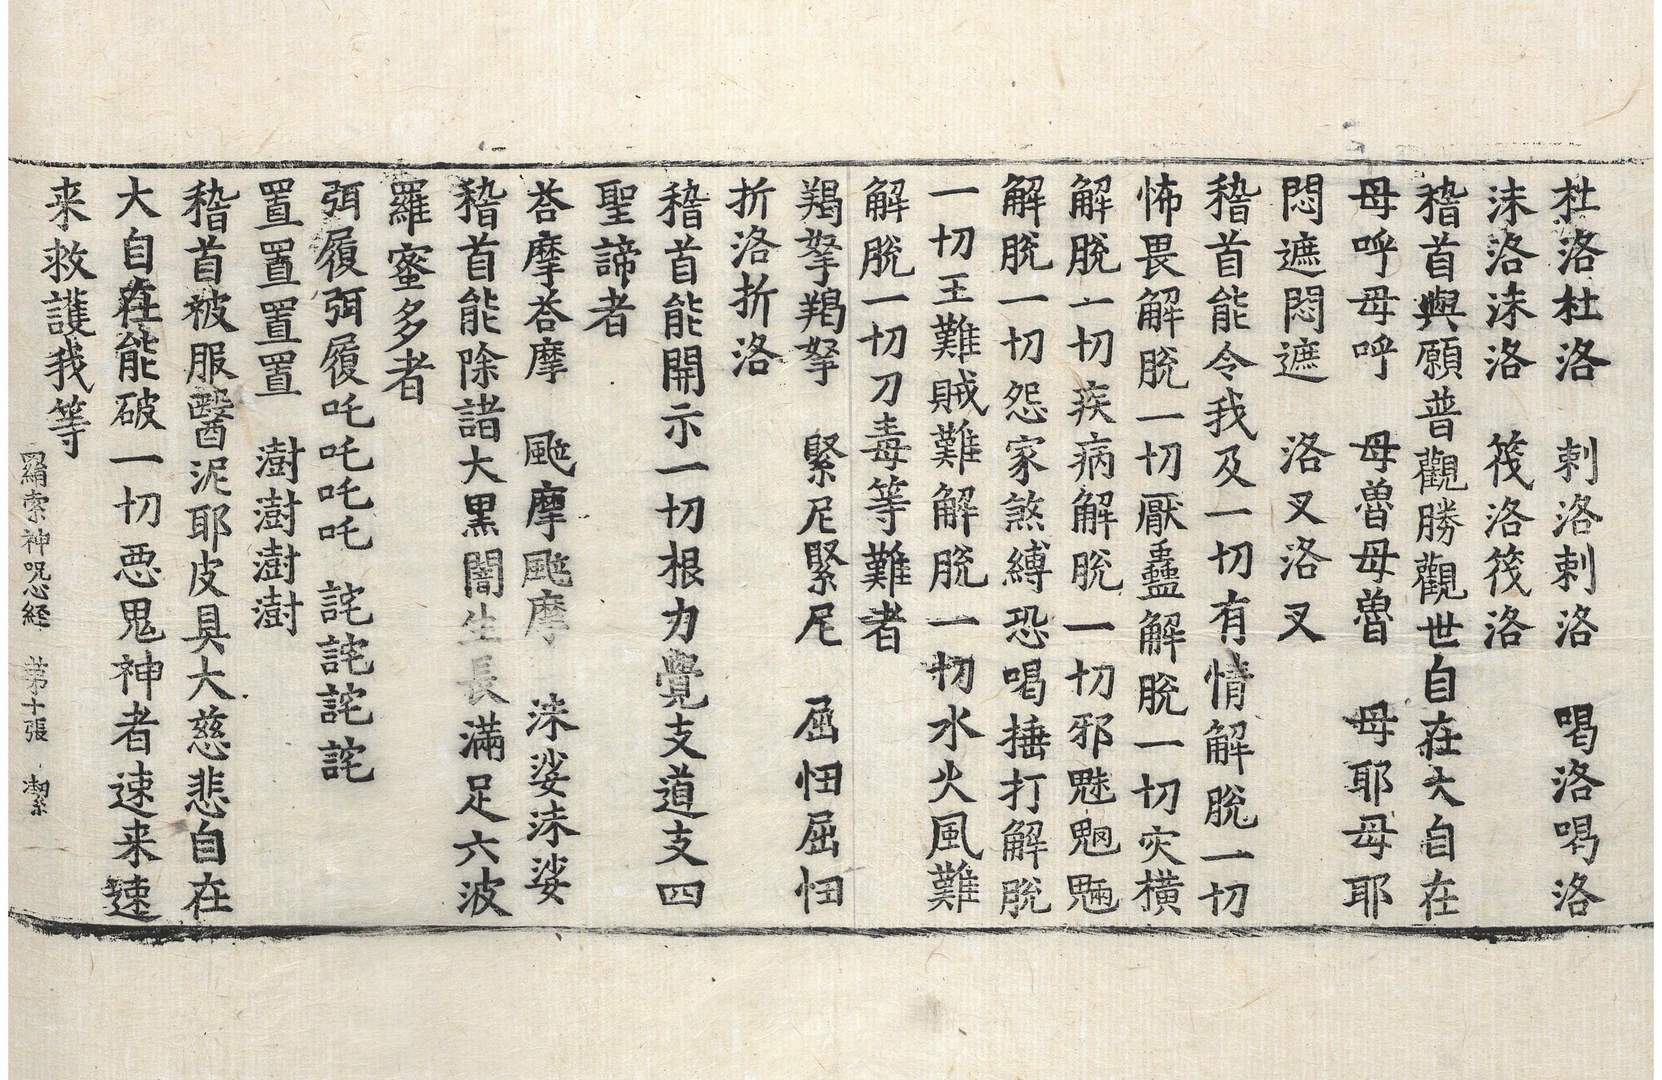 杜洛杜洛　剌洛剌洛　喝洛喝洛
沫洛沫洛　筏洛筏洛
稽首與願普觀勝觀世自在大自在
母呼母呼　母魯母魯　母耶母耶
悶遮悶遮　洛叉洛叉
稽首能令我及一切有情解脫一切
怖畏解脫一切厭蠱解脫一切灾橫
解脫一切疾病解脫一切邪魅魍魎
解脫一切怨家煞縛恐喝捶打解脫
一切王難賊難解脫一切水火風難
解脫一切刀毒等難者
羯拏羯拏　緊尼緊尼　屈忸屈忸
折洛折洛
稽首能開示一切根力覺支道支四
聖諦者
荅摩荅摩　颰摩颰摩　沫娑沫娑
稽首能除諸大黑闇生長滿足六波
羅蜜多者
弭履弭履吒吒吒吒　詫詫詫詫
置置置置　澍澍澍澍
稽首被服醫泥耶皮具大慈悲自在
大自在能破一切惡鬼神者速来速
来救護我等
羂索神呪心経　第十張　潔